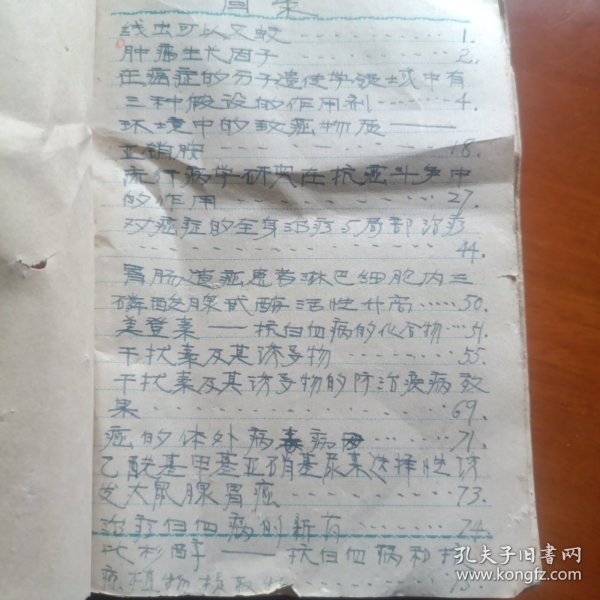 目录
线虫可以灭蚊 ------- 1.
肿瘤生长因子 ------- 2.
在癌症的分子遗传学领域中有
三种假设的作用剂 ---- 4.
环境中的致癌物质——
亚硝胺 ------- 18.
流行病学研究在抗癌斗争中
的作用 ------- 27.
对癌症的全身治疗与局部治疗
------- 44.
胃肠道癌患者淋巴细胞内三
磷酸腺甙酶活性升高 …… 50.
美登素——抗白血病的化合物 … 51.
干扰素及其诱导物 ------- 55.
干扰素及其诱导物的防治疾病效
果 ------- 69.
癌的体外病毒病因 ------- 71.
乙酰基甲基亚硝基尿素选择性诱
发大鼠腺胃癌 ------- 73.
治疗白血病的新药 ------- 74.
——抗白血病和抗
癌植物提取
孔夫子旧书网
www.kongfz.com